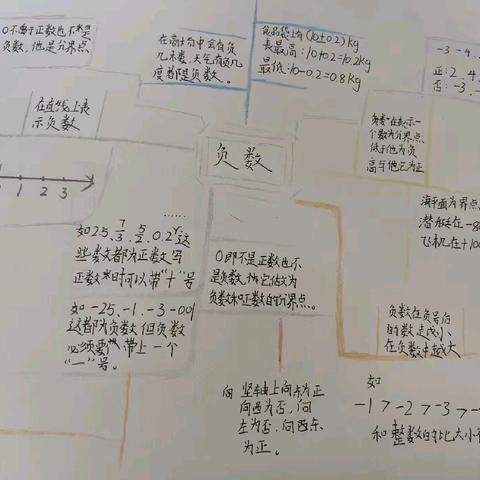 0不属于正数也不是
负数，他是分界点
在直线上表
示负数
1 2 3
在高结中会有负
几米楼，天气有负几
度都是负数。
食品袋上有(10±0.2)kg
最高：10+0.2=10.2kg
最低：10-0.2=0.8kg
-3 -4
正：2.4
否：-3
负数
负数"在表示一
个数为分界点
低于他为负
高与他它为正
海平面为界点
潜艇在-80
飞机在+100
如25、7/3、5/2、0.2这
些数都为正数 写
正数时可以带"十"号
如-25、-1、-3 -0.01
这都为负数但负数
必须要带上一个
"一"号。
0即不是正数也不
是负数，它估为
负数和正数的分界点。
负数在负号后
的数越小
在负数中越大
如
-1 > -2 > -3 > -
和整数的比大小不
向 竖轴上向东为正
向西为否，向
左为否，向西东
为正。